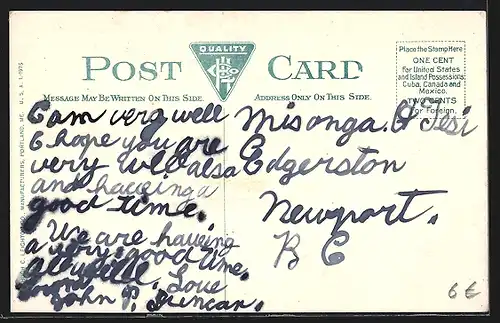 QUALITY
POST CARD
MESSAGE MAY BE WRITTEN ON THIS SIDE.
ADDRESS ONLY ON THIS SIDE.
Place the Stamp Here
ONE CENT
for United States
and Island Possessions
Cuba, Canada and
Mexico.
TWO CENTS
for Foreign.
I am very well
I hope you are
very well also
and haveing a
good time.
We are haveing
a very good time.
Love
John P. Duncan.
Edgerston
Newport.
R I
6 €